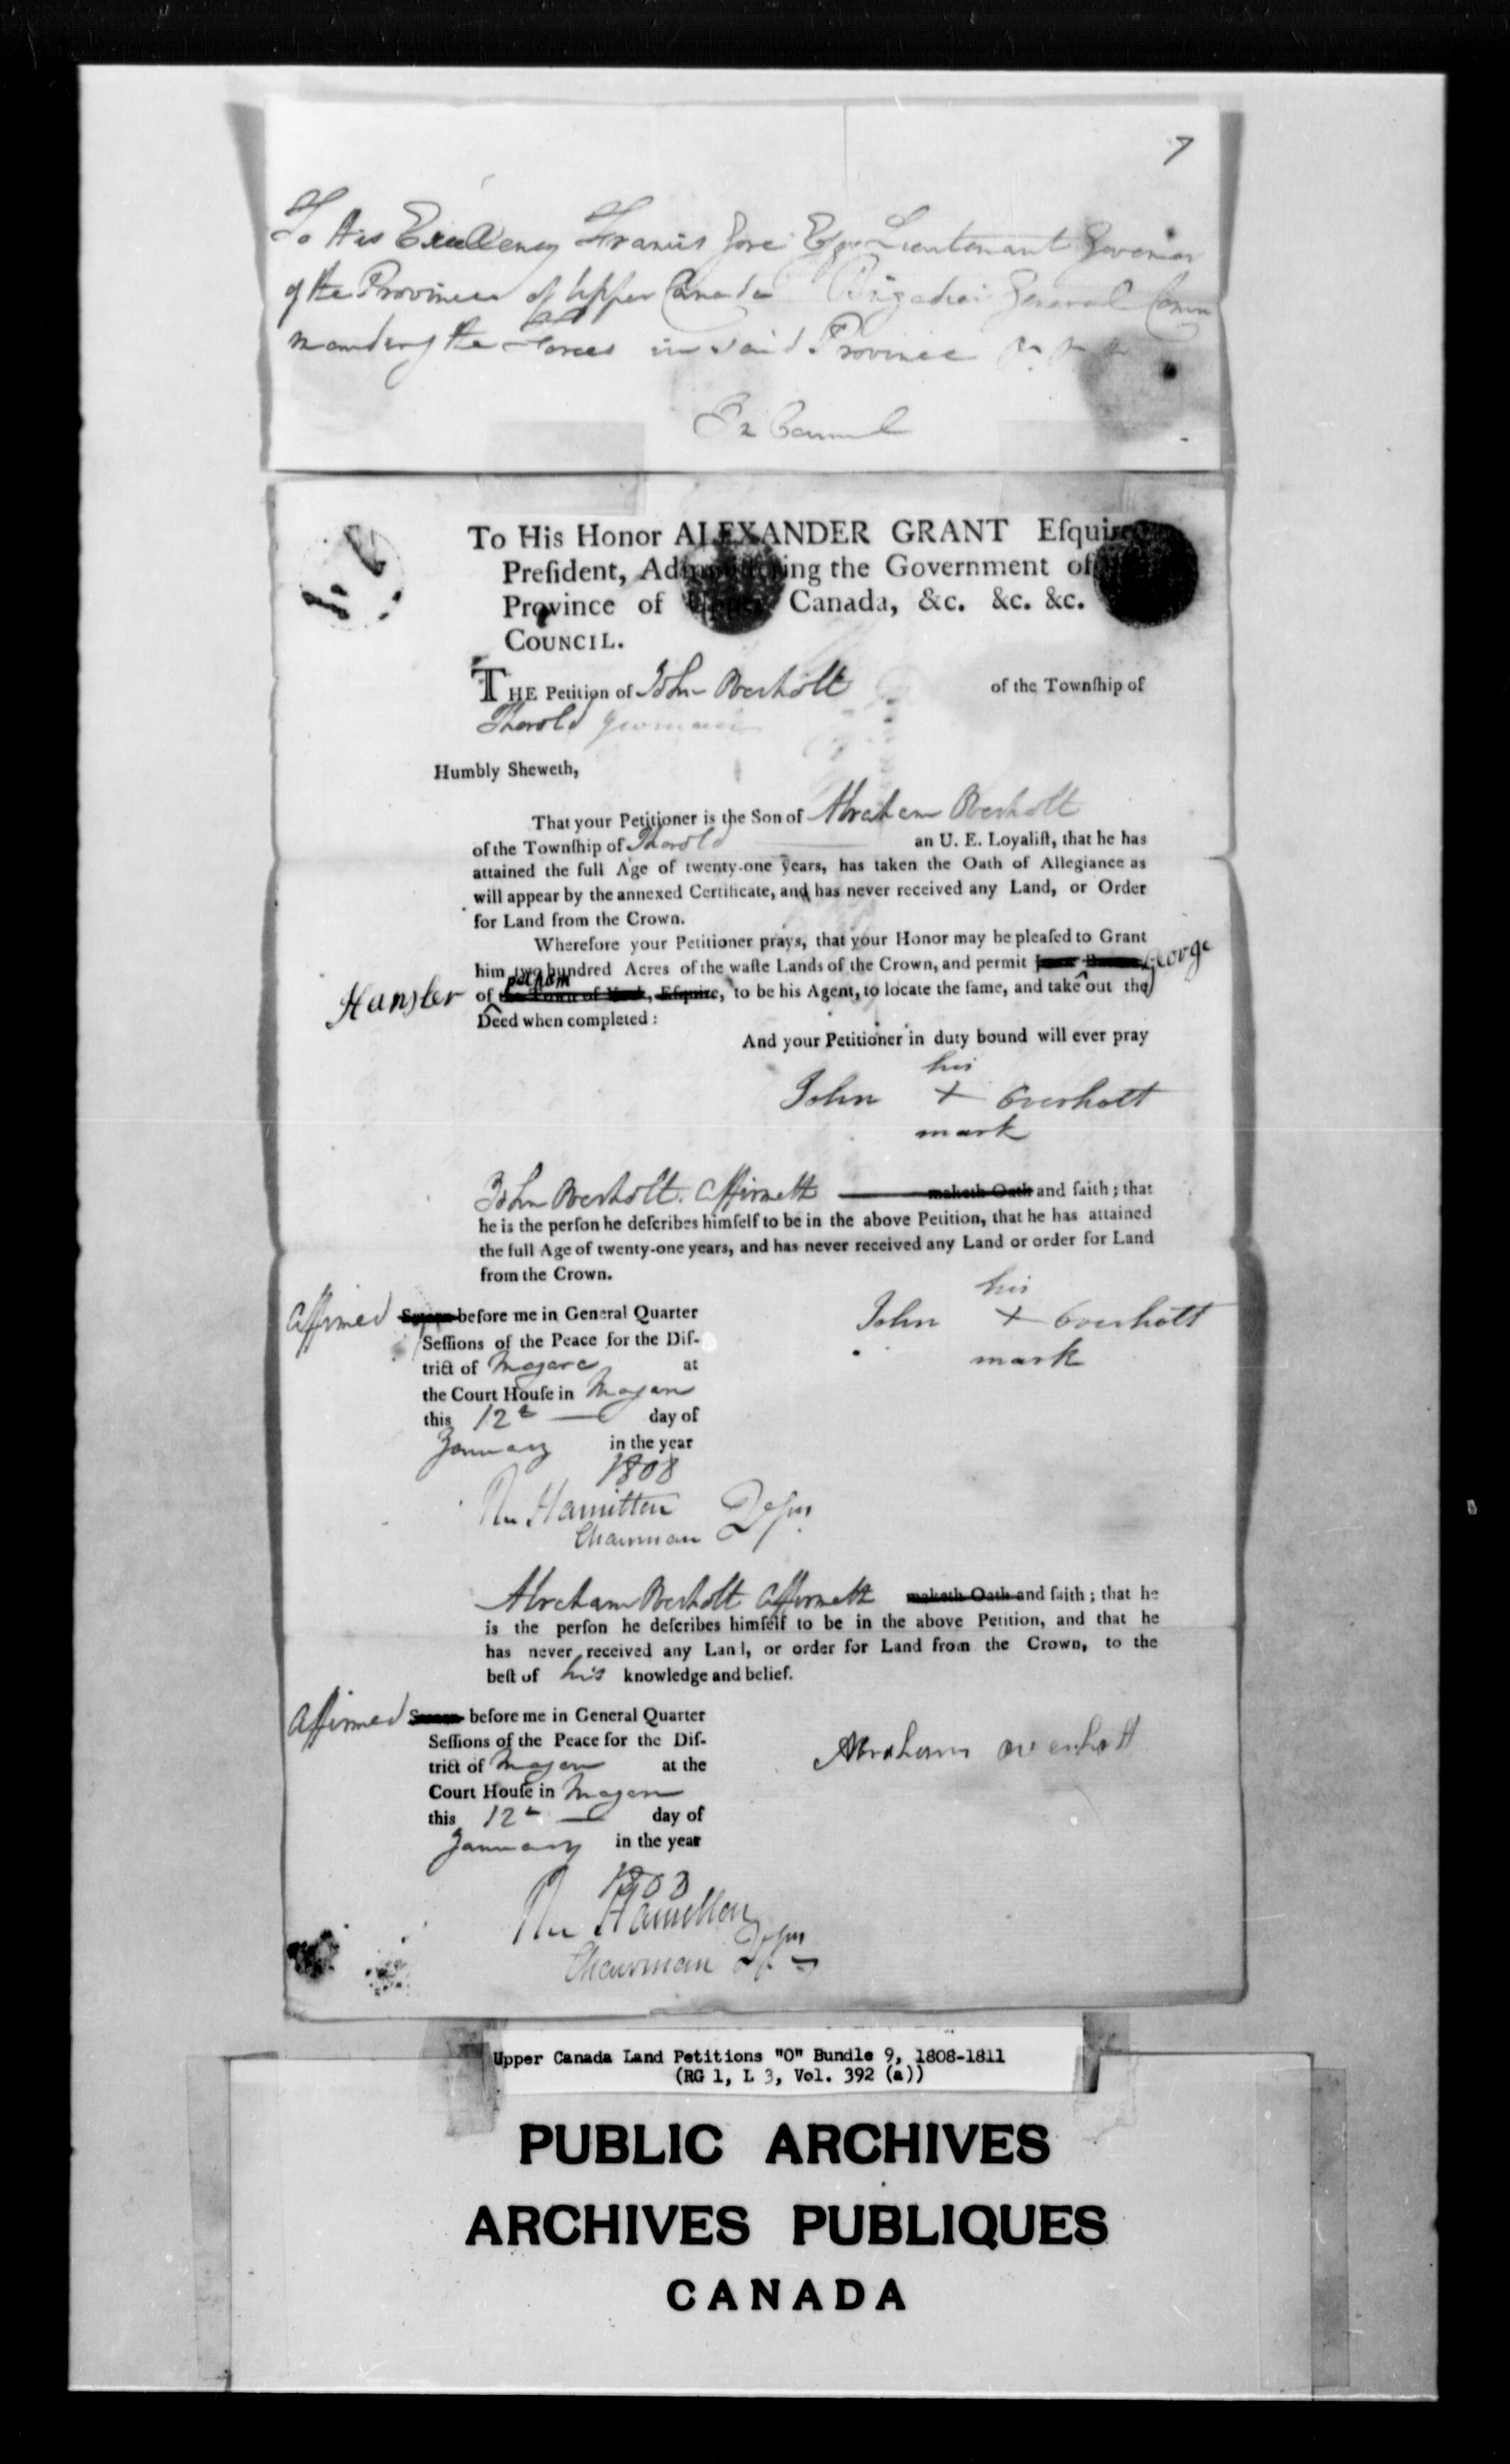 7
To His Excellency Francis Gore Esqr Lieutenant Governor
of the Province of Upper Canada Brigadier General Com
manding the Forces in said Province
In Council
To His Honor ALEXANDER GRANT Eſquire
Preſident, Adminiſtering the Government of
Province of Upper Canada, &c. &c. &c.
COUNCIL.
THE Petition of John Overholt of the Townſhip of
Thorold yeoman
Humbly Sheweth,
That your Petitioner is the Son of Abraham Overholt
of the Townſhip of Thorold an U. E. Loyaliſt, that he has
attained the full Age of twenty-one years, has taken the Oath of Allegiance as
will appear by the annexed Certificate, and has never received any Land, or Order
for Land from the Crown.
Wherefore your Petitioner prays, that your Honor may be pleaſed to Grant
him two hundred Acres of the waſte Lands of the Crown, and permit George
Hansler of pelham the Town of York, Eſquire, to be his Agent, to locate the ſame, and take out the
Deed when completed :
And your Petitioner in duty bound will ever pray
his
John + Overholt
mark
John Overholt Affirmeth maketh Oath and ſaith ; that
he is the perſon he deſcribes himſelf to be in the above Petition, that he has attained
the full Age of twenty-one years, and has never received any Land or order for Land
from the Crown.
his
John + Overholt
mark
Affirmed Sworn before me in General Quarter
Seſſions of the Peace for the Diſ-
trict of Niagara at
the Court Houſe in Niagara
this 12th day of
January in the year
1808
Hamilton
Chairman
Abraham Overholt Affirmeth maketh Oath and ſaith ; that he
is the perſon he deſcribes himſelf to be in the above Petition, and that he
has never received any Land, or order for Land from the Crown, to the
beſt of his knowledge and belief.
Affirmed Sworn before me in General Quarter
Seſſions of the Peace for the Diſ-
trict of Niagara at the
Court Houſe in Niagara
this 12th day of
January in the year
1808
Abraham overholt
Hamilton
Chairman
Upper Canada Land Petitions "O" Bundle 9, 1808-1811
(RG 1, L 3, Vol. 392 (a))
PUBLIC ARCHIVES
ARCHIVES PUBLIQUES
CANADA